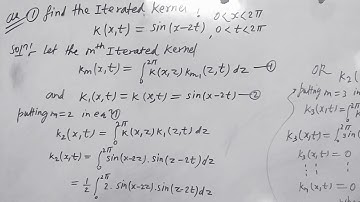 Q ① find the Iterated Kernel: 0<x<2π
K(x,t) = sin(x-2t), 0<t<2π
Solⁿ: Let the mth Iterated Kernel
Km(x,t) = ∫₀^2π K(x,z) Km-1(z,t) dz —①
and K₁(x,t) = K(x,t) = sin(x-2t) —②
putting m=2 in eq ①
K₂(x,t) = ∫₀^2π K(x,z) K₁(z,t) dz
K₂(x,t) = ∫₀^2π sin(x-2z). sin(z-2t) dz
= 1/2 ∫₀^2π 2. sin(x-2z). sin(z-2t) dz
OR K₂(
putting m=3 in
K₃(x,t) = ∫₀^2π K
K₃(x,t) = ∫₀^2π sin(
K₃(x,t) = 0
Kn(x,t) = 0